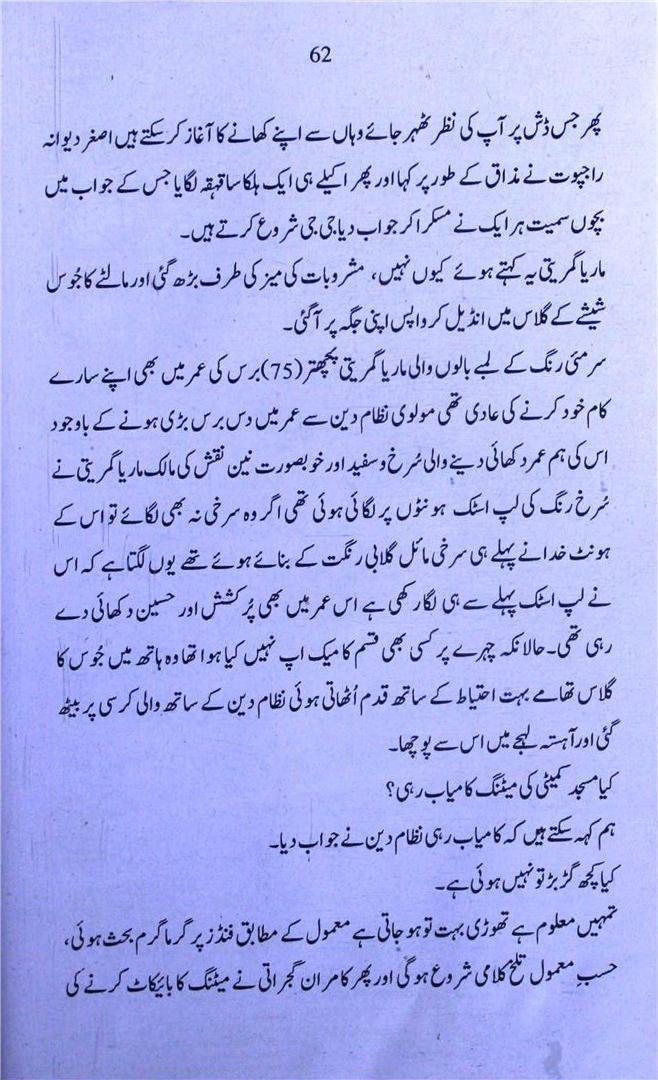 62
پھر جس ڈش پر آپ کی نظر ٹھہر جائے وہاں سے اپنے کھانے کا آغاز کر سکتے ہیں اصغر دیوانہ
راجپوت نے مذاق کے طور پر کہا اور پھر اکیلے ہی ایک ہلکا سا قہقہ لگایا جس کے جواب میں
بچوں سمیت ہر ایک نے مسکرا کر جواب دیا جی جی شروع کرتے ہیں۔
ماریا گمریتی یہ کہتے ہوئے کیوں نہیں، مشروبات کی میز کی طرف بڑھ گئی اور مالٹے کا جُوس
شیشے کے گلاس میں انڈیل کر واپس اپنی جگہ پر آگئی۔
سرمئی رنگ کے لمبے بالوں والی ماریا گمریتی پچھتر (75) برس کی عمر میں بھی اپنے سارے
کام خود کرنے کی عادی تھی مولوی نظام دین سے عمر میں دس برس بڑی ہونے کے باوجود
اس کی ہم عمر دکھائی دینے والی سُرخ و سفید اور خوبصورت نین نقش کی مالک ماریا گمریتی نے
سُرخ رنگ کی لپ اسٹک ہونٹوں پر لگائی ہوئی تھی اگر وہ سرخی نہ بھی لگائے تو اس کے
ہونٹ خدا نے پہلے ہی سرخی مائل گلابی رنگت کے بنائے ہوئے تھے یوں لگتا ہے کہ اس
نے لپ اسٹک پہلے سے ہی لگا رکھی ہے اس عمر میں بھی پُرکشش اور حسین دکھائی دے
رہی تھی۔ حالانکہ چہرے پر کسی بھی قسم کا میک اپ نہیں کیا ہوا تھا وہ ہاتھ میں جُوس کا
گلاس تھامے بہت احتیاط کے ساتھ قدم اُٹھاتی ہوئی نظام دین کے ساتھ والی کرسی پر بیٹھ
گئی اور آہستہ لہجے میں اس سے پوچھا۔
کیا مسجد کمیٹی کی میٹنگ کامیاب رہی؟
ہم کہہ سکتے ہیں کہ کامیاب رہی نظام دین نے جواب دیا۔
کیا کچھ گڑبڑ تو نہیں ہوئی ہے۔
تمہیں معلوم ہے تھوڑی بہت تو ہو جاتی ہے معمول کے مطابق فنڈز پر گرما گرم بحث ہوئی،
حسبِ معمول تلخ کلامی شروع ہوگی اور پھر کامران گجراتی نے میٹنگ کا بائیکاٹ کرنے کی